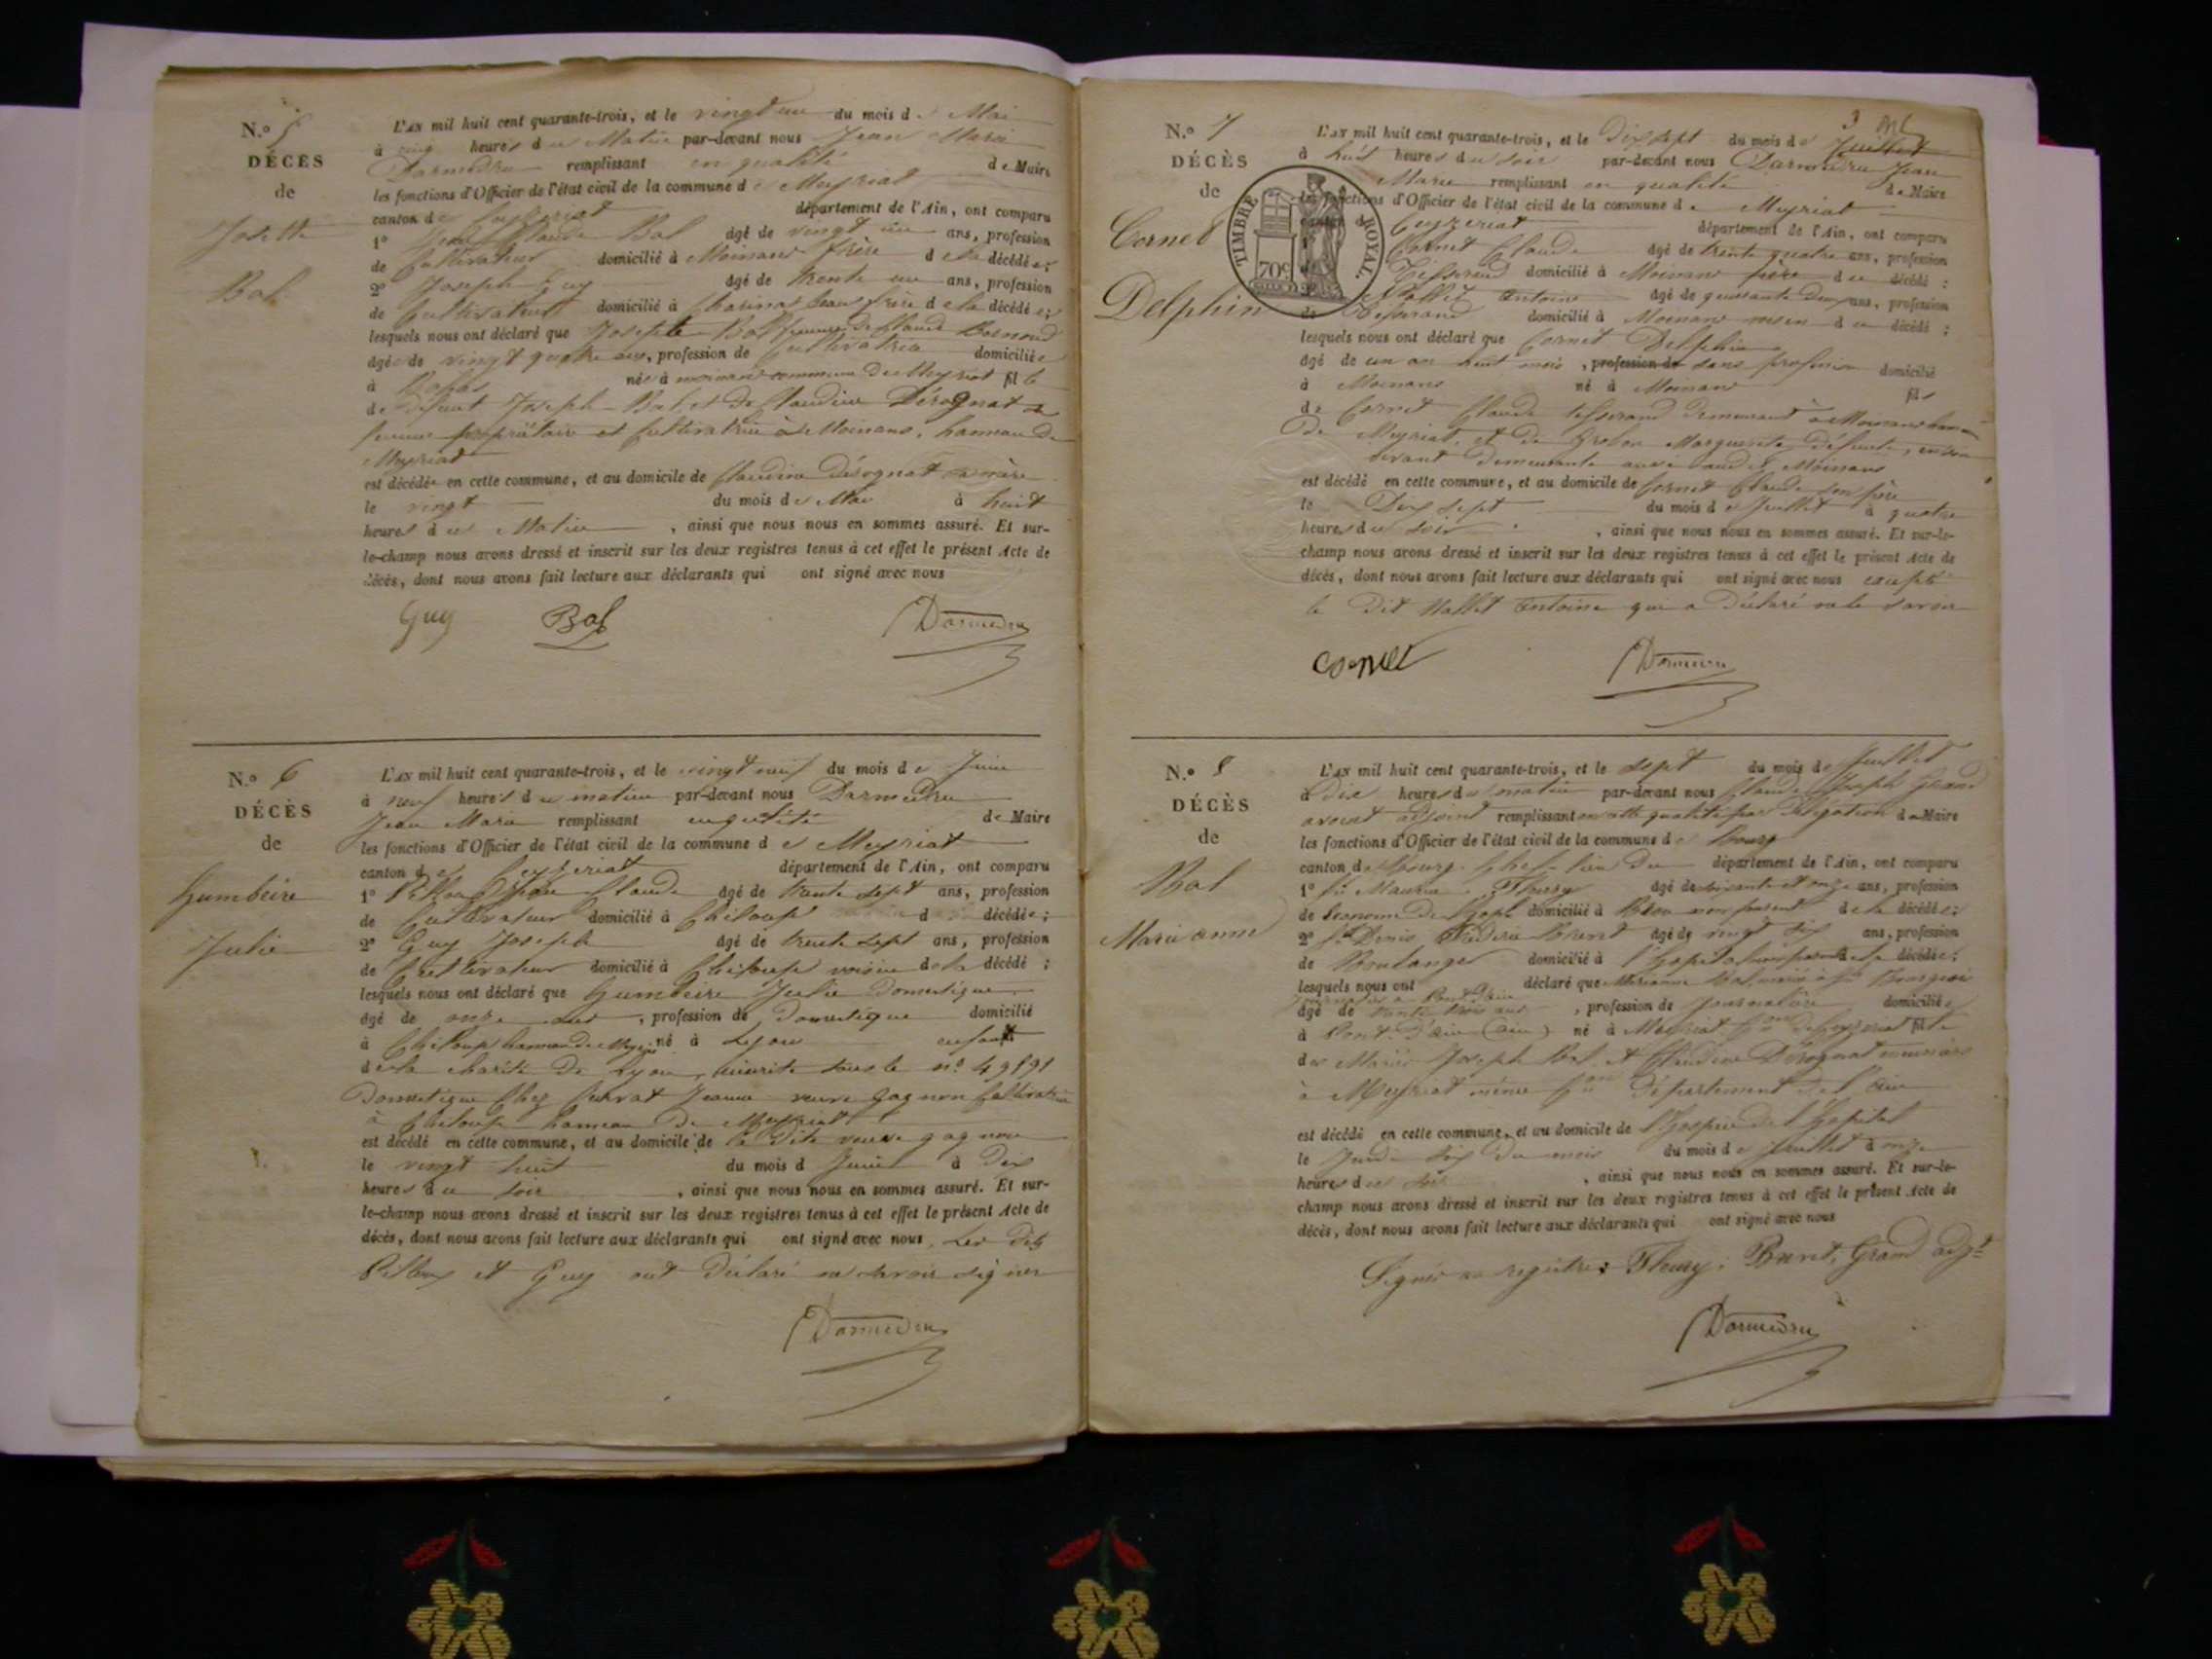 N.o 5
DÉCÈS
de
Josette
Bal
L'AN mil huit cent quarante-trois, et le vingt un du mois de Mai
à cinq heures du Matin par-devant nous Jean Marie
Darmedru remplissant en qualité de Maire
les fonctions d'Officier de l'état civil de la commune de Meyriat
canton de Ceyzeriat département de l'Ain, ont comparu
1° Claude Bal âgé de vingt ans, profession
de Cultivateur domicilié à Moinans frère de la décédée;
2° Joseph Guy âgé de trente un ans, profession
de Cultivateur domicilié à beau frère de la décédée;
lesquels nous ont déclaré que Josepte Bal femme de Claude
âgée de vingt quatre ans, profession de Cultivatrice domiciliée
à née à moinans commune de Meyriat fille
de défunt Joseph Bal et de Claudine Dérognat sa
femme propriétaire et Cultivatrice à Moinans, hameau de
Meyriat
est décédée en cette commune, et au domicile de Claudine Dérognat sa mère
le vingt du mois de Mai à huit
heures du Matin, ainsi que nous nous en sommes assuré. Et sur-
le-champ nous avons dressé et inscrit sur les deux registres tenus à cet effet le présent Acte de
décès, dont nous avons fait lecture aux déclarants qui ont signé avec nous
Guy Bal Darmedru
N.o 6
DÉCÈS
de
Gumbeire
Julie
L'AN mil huit cent quarante-trois, et le vingt neuf du mois de Juin
à neuf heures du matin par-devant nous Darmedru
Jean Marie remplissant en qualité de Maire
les fonctions d'Officier de l'état civil de la commune de Meyriat
canton de Ceyzeriat département de l'Ain, ont comparu
1° Claude âgé de trente sept ans, profession
de Cultivateur domicilié à Chiloup d décédée;
2° Guy Joseph âgé de trente sept ans, profession
de Cultivateur domicilié à Chiloup voisin de la décédé;
lesquels nous ont déclaré que Gumbeire Julie Domestique
âgé de onze ans, profession de Domestique domicilié
à Chiloup hameau de Meyriat né à Lyon enfant
de la charité de Lyon, inscrite sous le n° 49191
Domestique Chez Jeanne veuve Gagnon Cultivatrice
à Chiloup hameau de Meyriat
est décédé en cette commune, et au domicile de la dite veuve gagnon
le vingt huit du mois d Juin à Dix
heures du soir, ainsi que nous nous en sommes assuré. Et sur-
le-champ nous avons dressé et inscrit sur les deux registres tenus à cet effet le présent Acte de
décès, dont nous avons fait lecture aux déclarants qui ont signé avec nous, Les dits
et Guy ont déclaré ne savoir signer
Darmedru
3
N.o 7
DÉCÈS
de
Cornet
Delphin
TIMBRE ROYAL.
70c
L'AN mil huit cent quarante-trois, et le Dix sept du mois de Juillet
à huit heures du soir par-devant nous Darmedru Jean
Marie remplissant en qualité de Maire
les fonctions d'Officier de l'état civil de la commune de Meyriat
Ceyzeriat département de l'Ain, ont comparu
Cornet Claude âgé de trente quatre ans, profession
Tisserand domicilié à Moinans père du décédé;
Mallet Antoine âgé de quarante deux ans, profession
de Tisserand domicilié à Moinans voisin du décédé;
lesquels nous ont déclaré que Cornet Delphin
âgé de un an huit mois, profession de sans profession domicilié
à Moinans né à Moinans fils
de Cornet Claude tisserand demeurant à Moinans hameau
De Meyriat, et de Grobon Marguerite défunte, en son
vivant demeurante aussi audit Moinans
est décédé en cette commune, et au domicile de Cornet Claude son père
le Dix sept du mois de Juillet à quatre
heures du soir, ainsi que nous nous en sommes assuré. Et sur-le-
champ nous avons dressé et inscrit sur les deux registres tenus à cet effet le présent Acte de
décès, dont nous avons fait lecture aux déclarants qui ont signé avec nous excepté
le dit Mallet Antoine qui a déclaré ne le savoir
Cornet Darmedru
N.o 8
DÉCÈS
de
Bal
Marie anne
L'AN mil huit cent quarante-trois, et le sept du mois de Juillet
à dix heures du matin par-devant nous Claude Joseph Grand
avocat adjoint remplissant en cette qualité par délégation du Maire
les fonctions d'Officier de l'état civil de la commune de Bourg
canton de Bourg Chef lieu du département de l'Ain, ont comparu
1° Maurice Fleury âgé de soixante et onze ans, profession
de Econome de l'hopl domicilié à Bourg non parent de la décédée;
2° Denis Frédéric Brunet âgé de vingt six ans, profession
de Boulanger domicilié à l'hopital non parent de la décédée;
lesquels nous ont déclaré que Marianne Bal,
âgé de trente trois ans, profession de Journalière domiciliée
à Pont d'ain (ain) né à Meyriat Con de Ceyzeriat fille
des Mariés Joseph Bal et Claudine Dérognat
à Meyriat même Con département de l'ain
est décédé en cette commune, et au domicile de l'hospice de l'hopital
le Jeudi six du mois du mois de Juillet à onze
heures du soir, ainsi que nous nous en sommes assuré. Et sur-le-
champ nous avons dressé et inscrit sur les deux registres tenus à cet effet le présent Acte de
décès, dont nous avons fait lecture aux déclarants qui ont signé avec nous
Signés au registre: Fleury; Brunet, Grand adjt
Darmedru